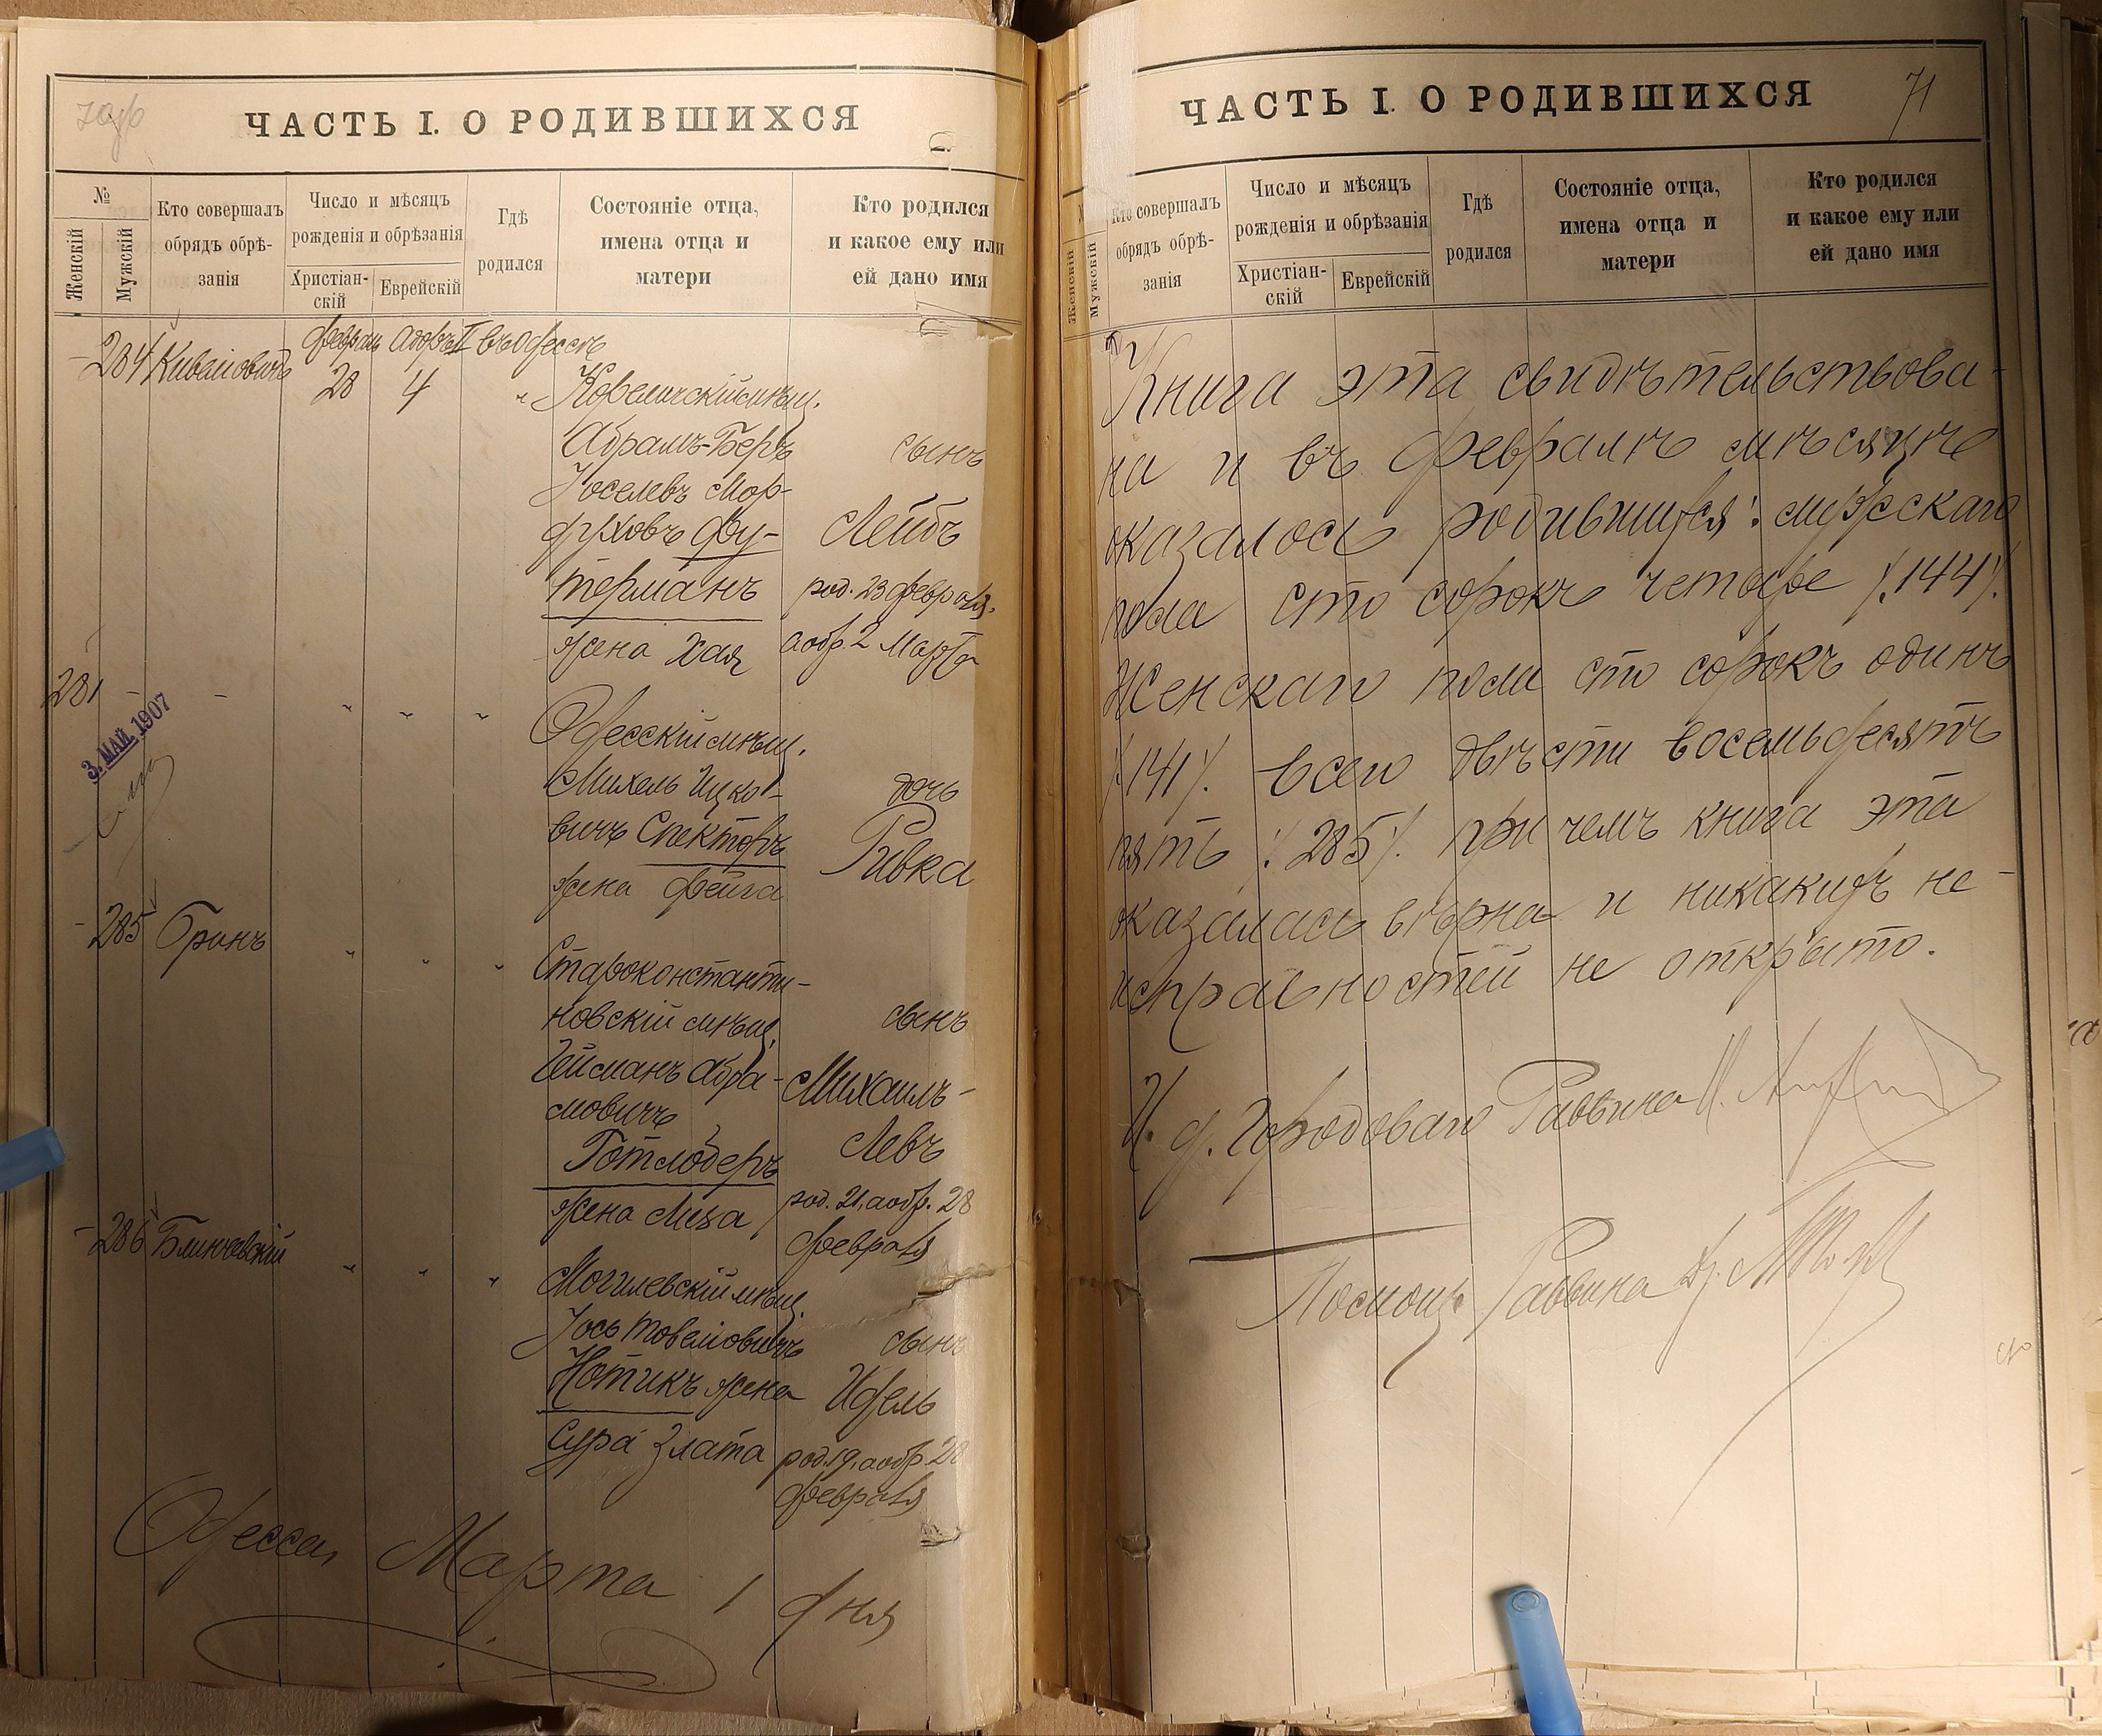 ЧАСТЬ I. О РОДИВШИХСЯ
№
Женскій
Мужскій
Кто совершалъ
обрядъ обрѣ-
занія
Число и мѣсяцъ
рожденія и обрѣзанія
Христіан-
скій
Еврейскій
Гдѣ
родился
Состояніе отца,
имена отца и
матери
Кто родился
и какое ему или
ей дано имя
284
Февраль Адаръ II въ Одессѣ
28 4
мѣщ.
Абрамъ-Беръ
Іоселевъ Мор-
духовъ Фу-
терманъ
жена Хая
сынъ
Лейбъ
род. 23 февраля,
а обр. 2 Марта
281
3. МАЙ. 1907
Одесскій мѣщ.
Михель Ицко-
вичъ Спекторъ
жена Фейга
дочь
Ривка
285
Староконстанти-
новскій мѣщ.
Гейманъ Абра-
мовичъ
Готлоберъ
жена Лиза
сынъ
Михаилъ-
Левъ
род. 21, а обр. 28
февраля
286
Могилевскій мѣщ.
Іось
Нотикъ жена
Сура Злата
сынъ
Идель
род. 19, а обр. 28
февраля
Одесса, Марта 1 дня
ЧАСТЬ I. О РОДИВШИХСЯ
71
Женскій
Мужскій
Кто совершалъ
обрядъ обрѣ-
занія
Число и мѣсяцъ
рожденія и обрѣзанія
Христіан-
скій
Еврейскій
Гдѣ
родился
Состояніе отца,
имена отца и
матери
Кто родился
и какое ему или
ей дано имя
Книга эта свидѣтельствова-
на и въ февралѣ мѣсяцѣ
оказалось родившихся: мужскаго
пола сто сорокъ четыре /.144/.
Женскаго пола сто сорокъ одинъ
/.141/. всего двѣсти восемьдесятъ
пять /.285/. при чемъ книга эта
оказалась вѣрна и никакихъ не-
исправностей не открыто.
И. д. Городоваго Раввина
Помощ. Раввина